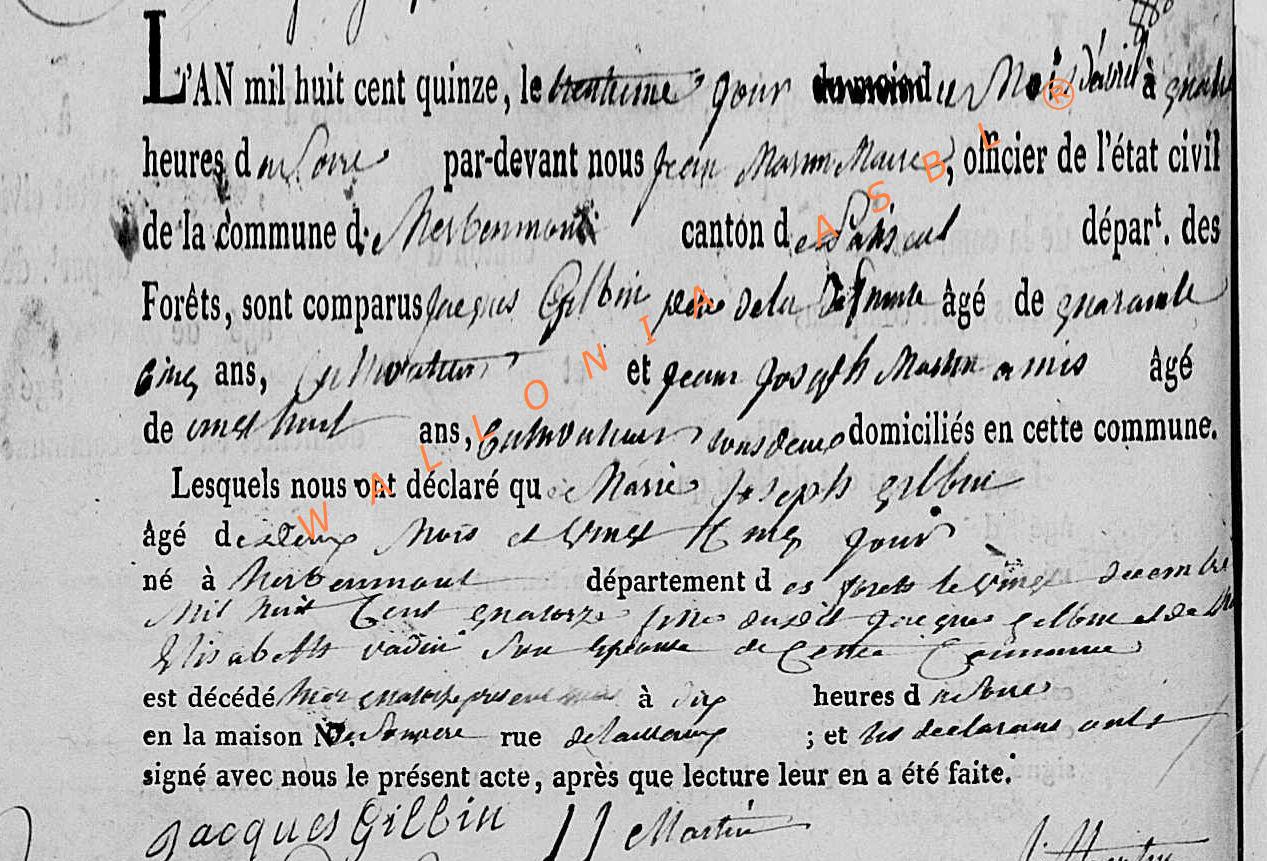 L'AN mil huit cent quinze, le jour du Mois d'avril à quatre
heures du Soire par-devant nous jean Martin Maire, officier de l'état civil
de la commune de Herbeumont canton de Paliseul départ. des
Forêts, sont comparus jacques Gilbin père de la defunte âgé de quarante
cinq ans, Cultivateur et jean joseph Martin amis âgé
de vingt huit ans, Cultivateur tous deux domiciliés en cette commune.
Lesquels nous ont déclaré que Marie joseph gilbin
âgé de mois et vingt cinq jour
né à herbeumont département des forets le vingt decembre
mil huit Cent quatorze fille dudit jacques gilbin et de
Elisabeth vadin Son epouse de Cette Commune
est décédé hier quatorze present mois à dix heures du Soire
en la maison N°. rue ; et les declarans onts
signé avec nous le présent acte, après que lecture leur en a été faite.
Jacques Gilbin JJ Martin J Martin
WALLONIA ASBL ®